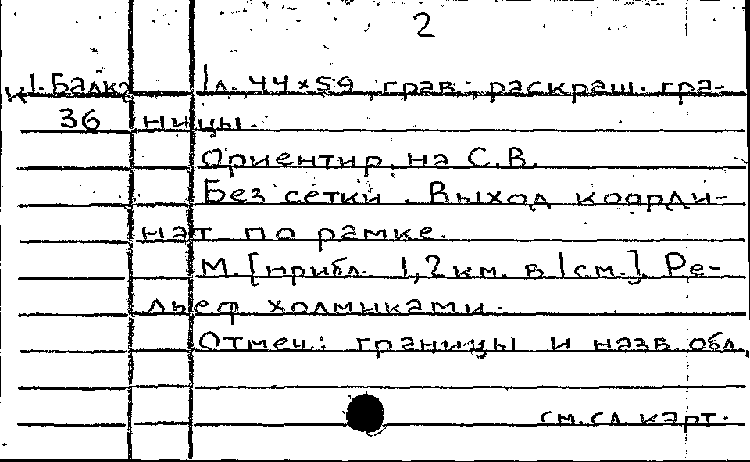 2
К 1-Балк 1л. 44×59 грав. раскраш. гра-
36 ницы.
Ориентир. на С.В.
Без сетки. Выход коорди-
нат по рамке.
М. [прибл. 1,2 км. в 1 см.] Ре-
льеф холмиками.
Отмеч: границы и назв. обл.
см. сл. карт.